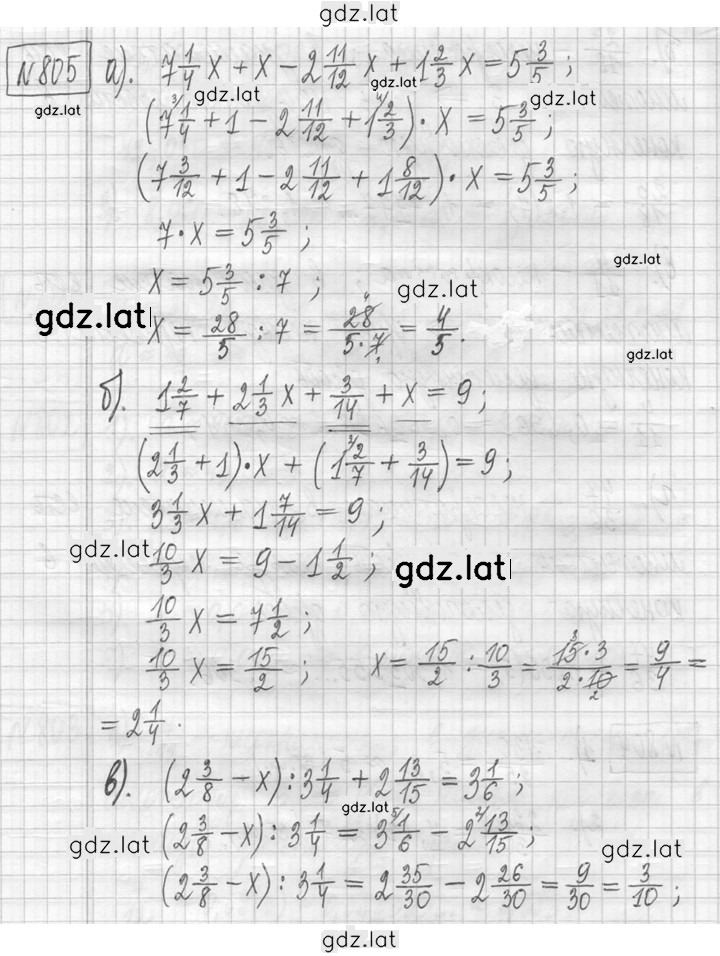 gdz.lat
№805 а). 7 1/4 x + x − 2 11/12 x + 1 2/3 x = 5 3/5 ;
gdz.lat gdz.lat gdz.lat
gdz.lat
(7 ³⁾1/4 + 1 − 2 11/12 + 1 ⁴⁾2/3) · x = 5 3/5 ;
(7 3/12 + 1 − 2 11/12 + 1 8/12) · x = 5 3/5 ;
7 · x = 5 3/5 ;
gdz.lat
x = 5 3/5 : 7 ;
gdz.lat
gdz.lat
x = 28/5 : 7 = 28⁴/5·7₁ = 4/5.
gdz.lat
б). 1 2/7 + 2 1/3 x + 3/14 + x = 9 ;
(2 1/3 + 1) · x + (1 ²⁾2/7 + 3/14) = 9 ;
3 1/3 x + 1 7/14 = 9 ;
gdz.lat
10/3 x = 9 − 1 1/2 ;
gdz.lat
10/3 x = 7 1/2 ;
10/3 x = 15/2 ; x = 15/2 : 10/3 = 15³·3/2·10₂ = 9/4 =
= 2 1/4 .
в). (2 3/8 − x) : 3 1/4 + 2 13/15 = 3 1/6 ;
gdz.lat
(2 3/8 − x) : 3 1/4 = 3 ⁵⁾1/6 − 2 ²⁾13/15 ;
gdz.lat gdz.lat
(2 3/8 − x) : 3 1/4 = 2 35/30 − 2 26/30 = 9/30 = 3/10 ;
gdz.lat